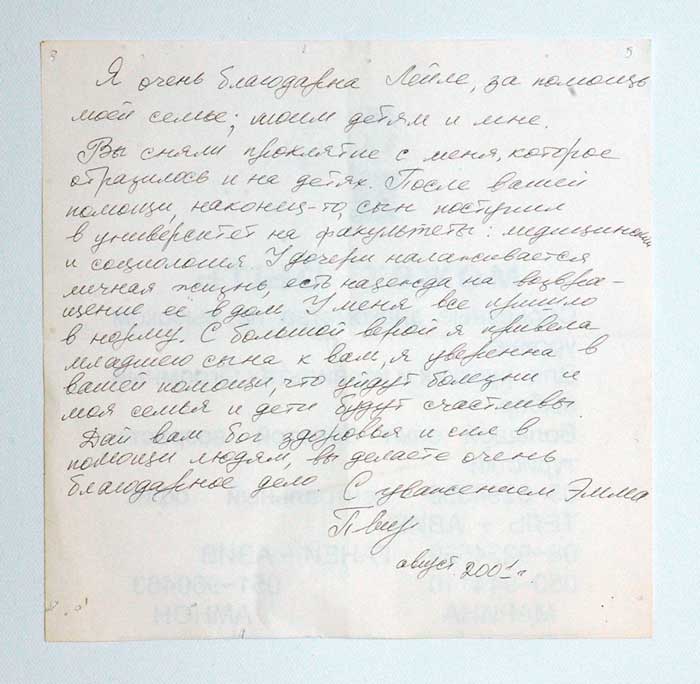 Я очень благодарна Лейле, за помощь
моей семье; моим детям и мне.
Вы сняли проклятие с меня, которое
отразилось и на детях. После вашей
помощи, наконец-то, сын поступил
в университет на факультеты: медицинский
и социология У дочери налаживается
личная жизнь, есть надежда на возвра-
щение её в дом. У меня все пришло
в норму. С большой верой я привела
младшего сына к вам, я уверенна в
вашей помощи, что уйдут болезни и
моя семья и дети будут счастливы.
Дай вам бог здоровья и сил в
помощи людям, вы делаете очень
благодарное дело
С уважением Эмма
август 2001 г.